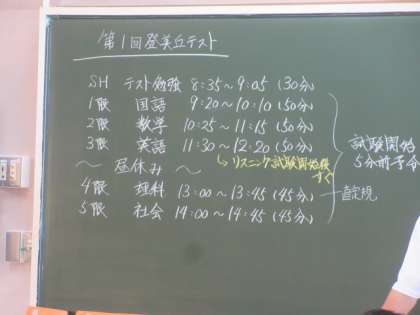 第1回登美丘テスト
SH テスト勉強 8:35～9:05 (30分)
1限 国語 9:20～10:10 (50分)
2限 数学 10:25～11:15 (50分)
3限 英語 11:30～12:20 (50分)
↳リスニング試験開始後すぐ
～ 昼休み ～
4限 理科 13:00～13:45 (45分)
5限 社会 14:00～14:45 (45分)
試験開始
5分前予令
定規